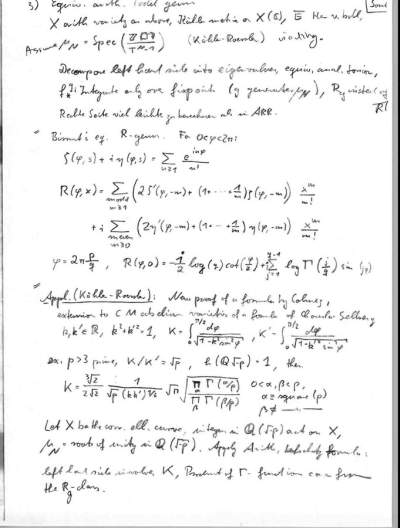 3) Equiv. arith.
X arith. variety as above, Kähler metric on X(C), E̅ He. v. bdl.
Assume μ_N = Spec (Z[T]/T^N-1) (Köhler-Roessler) acting.
Decompose left hand side into eigenvalues, equiv. anal. torsion,
f_*: Integrate only over fixpoints (g generates μ_N), R_g instead of R
Rechte Seite viel leichter zu berechnen als in ARR.
" Bismut's eq. R-genus. For 0<φ<2π:
ζ(φ,s) + i η(φ,s) = Σ_{n≥1} e^{inφ}/n^s
R(φ,x) = Σ_{m odd, m≥1} (2ζ'(φ,-m) + (1+···+1/m) ζ(φ,-m)) x^m/m!
+ i Σ_{m even, m≥0} (2η'(φ,-m) + (1+···+1/m) η(φ,-m)) x^m/m!
φ = 2π p/q, R(φ,0) = -i/2 log(q) cot(φ/2) + i Σ_{j=1}^{q-1} log Γ(j/q) sin (jφ)
" Appl. (Köhler-Roessler): New proof of a formula by Colmez,
extension to CM abelian varieties of a formula of Chowla Selberg
k,k'∈R, k²+k'²=1, K = ∫_0^{π/2} dφ/√(1-k²sin²φ), K' = ∫_0^{π/2} dφ/√(1-k'²sin²φ)
ex. p>3 prime, K/K' = √p, h(Q√-p) = 1, then
0<α,β<p,
α ≡ square (p)
β ≢
Let X be the corr. ell. curve, integers in Q(√-p) act on X,
μ_N = roots of unity in Q(√-p). Apply Arith. Lefschetz formula:
left hand side involves K, Product of Γ-function come from
the R_g-class.